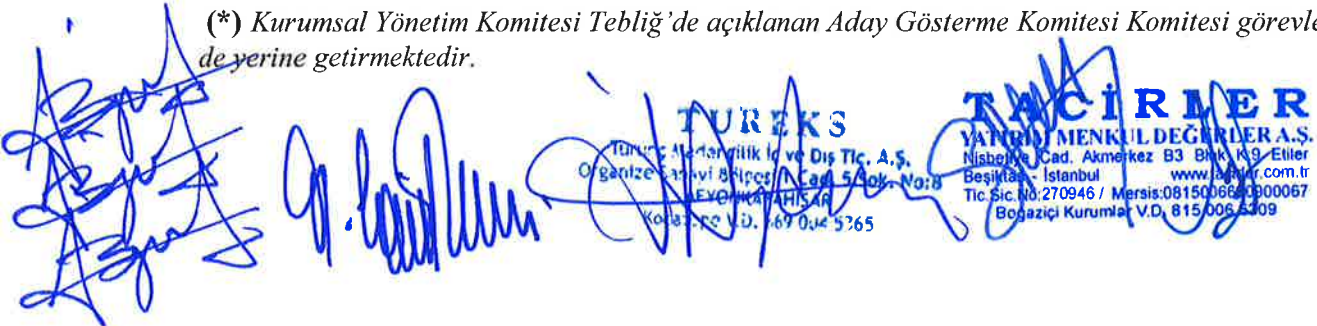 (*) Kurumsal Yönetim Komitesi Tebliğ'de açıklanan Aday Gösterme Komitesi Komitesi görevle
de yerine getirmektedir.
TUREKS
Turunç Madencilik İç ve Dış Tic. A.Ş.
Organize Sanayi Bölgesi Cad. 5 Sok. No:8
AFYONKARAHİSAR
Kocatepe V.D.
TACİRLER
YATIRIM MENKUL DEĞERLER A.Ş.
Nisbetiye Cad. Akmerkez B3 Blok K.9 Etiler
Beşiktaş - İstanbul www.tacirler.com.tr
Tic.Sic.No:270946 / Mersis:
Boğaziçi Kurumlar V.D. 815 006